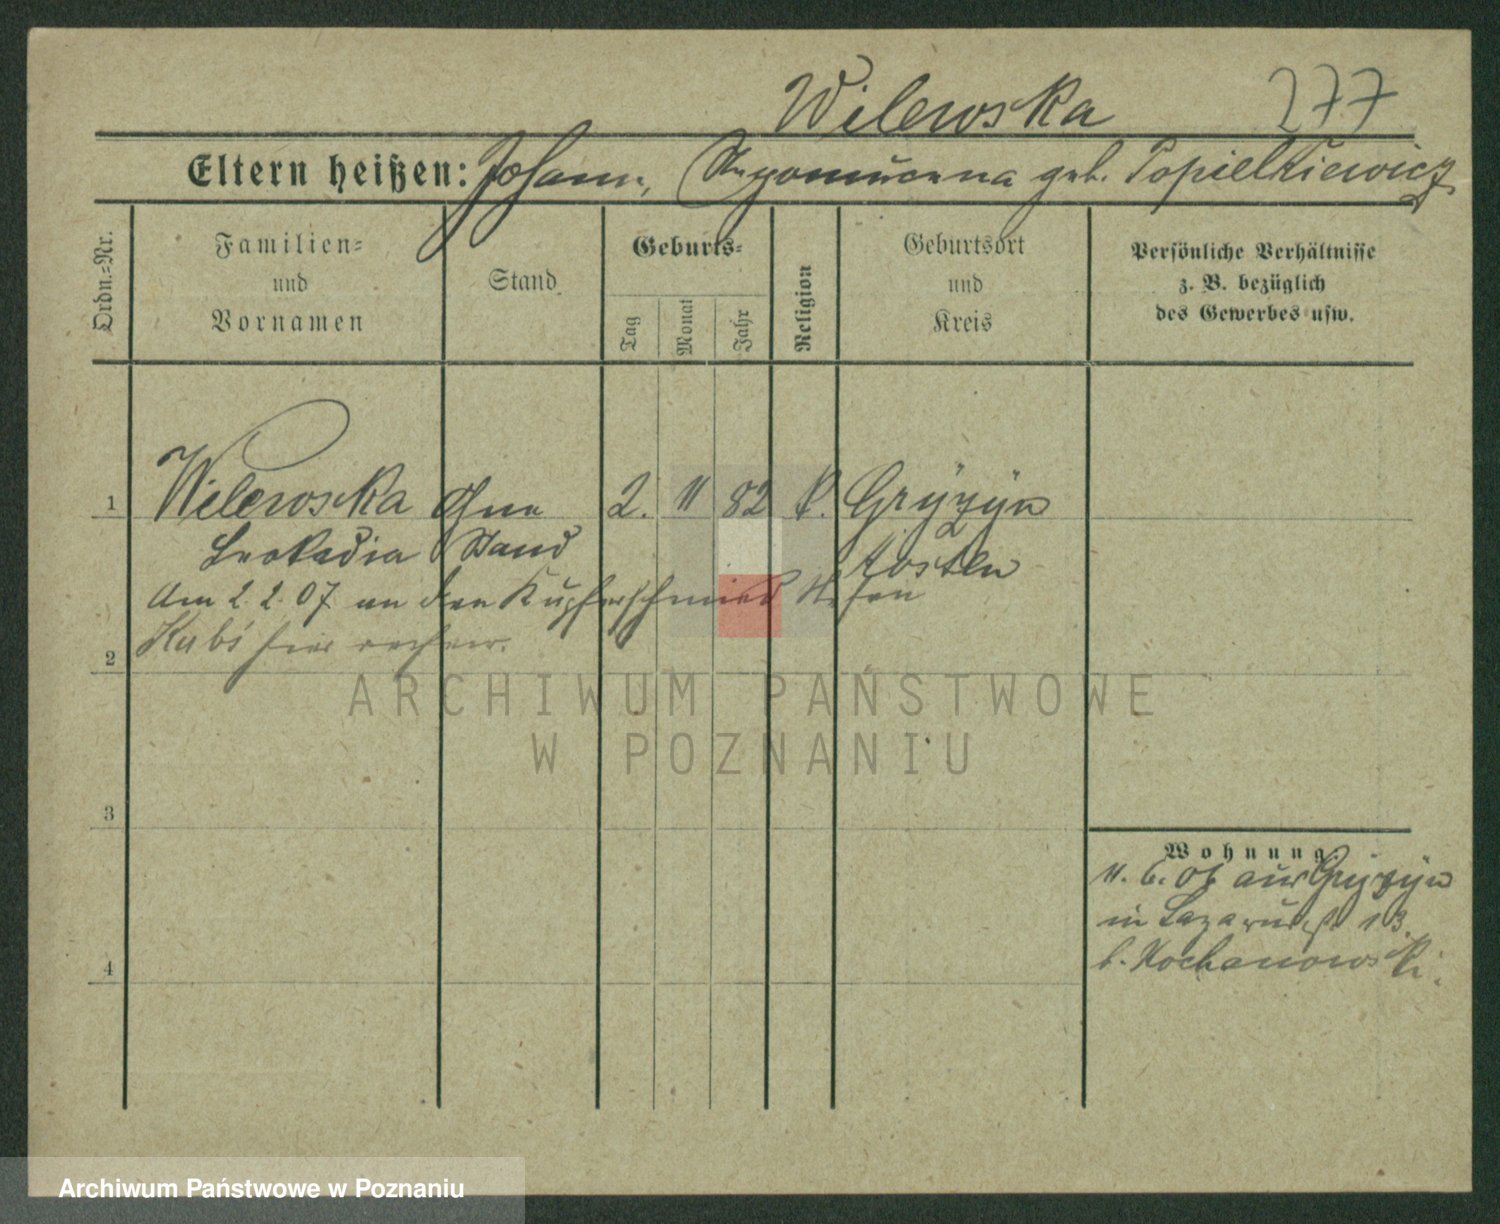 Wilewska 277
Eltern heißen: Johann, Nepomucena geb. Popielkiewicz
Ordn.=Nr.
Familien=
und
Vornamen
Stand
Geburts=
Tag
Monat
Jahr
Religion
Geburtsort
und
Kreis
Persönliche Verhältnisse
z. B. bezüglich
des Gewerbes usw.
1 Wilewska Ohne 2. 11 82 k. Gryżyn
Leokadia Stand Kosten
Am 2. 2. 07 an den Kupferschmied Stefan
Kubś hier verheir.
2
3
4
Wohnung.
11. 6. 06 aus Gryżyn
in Lazarusstr 13.
b. Kochanowski.
ARCHIWUM PAŃSTWOWE
W POZNANIU
Archiwum Państwowe w Poznaniu